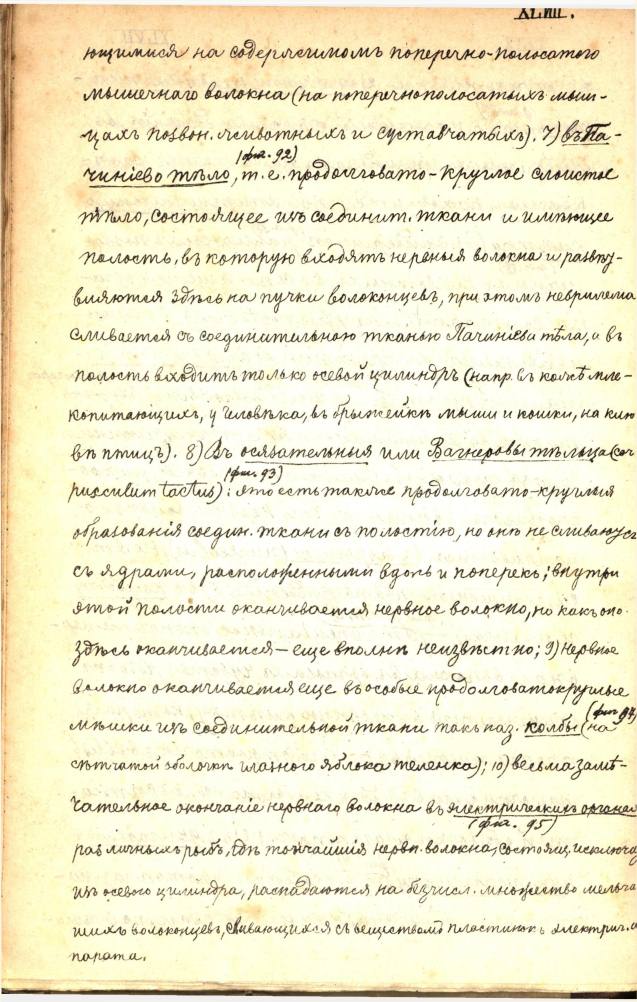 XLVIII.
ющимися на содержимомъ поперечно-полосатого
мышечнаго волокна (на поперечнополосатыхъ мыш-
цахъ позвон. животныхъ и суставчатыхъ). 7) въ Па-
(фиг. 92)
чиніево тѣло, т. е. продолговато-круглое слоистое
тѣло, состоящее изъ соединит. ткани и имѣющее
полость, въ которую входятъ нервныя волокна и развѣт-
вляются здѣсь на пучки волоконцевъ, при этомъ неврилема
сливается съ соединительною тканью Пачиніева тѣла, а въ
полость входитъ только осевой цилиндръ (напр. въ кожѣ мле-
копитающихъ, у человѣка, въ брыжейкѣ мыши и кошки, на клю
вѣ птицъ). 8) Въ осязательныя или Вагнеровы тѣльца (cor
(фиг. 93)
pusculum tactus): это есть также продолговато-круглыя
образованія соедин. ткани съ полостію, но онѣ не сливаются
съ ядрами, расположенными вдоль и поперекъ; внутри
этой полости оканчивается нервное волокно, но какъ оно
здѣсь оканчивается — еще вполнѣ неизвѣстно; 9) нервное
волокно оканчивается еще въ особые продолговатокруглые
(фиг. 94)
мѣшки изъ соединительной ткани такъ наз. колбы (на
сѣтчатой оболочкѣ глазного яблока теленка); 10) весьма замѣ-
чательное окончаніе нервнаго волокна въ электрическихъ органах
(фиг. 95)
различныхъ рыбъ, гдѣ тончайшія нервн. волокна, состоящ. исключ
изъ осевого цилиндра, распадаются на безчисл. множество мельча
шихъ волоконцевъ, сливающихся съ веществомъ пластинокъ электрич. а
парата.